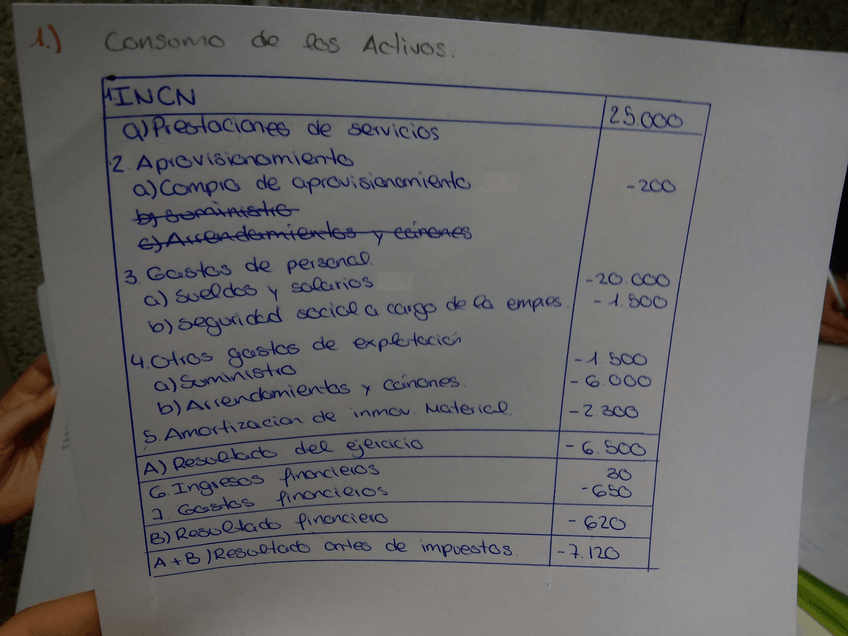 1.) Consumo de los Activos.
1 INCN 25.000
a) Prestaciones de servicios
2. Aprovisionamiento
a) Compra de aprovisionamiento -200
b) Suministro
c) Arrendamientos y cánones
3. Gastos de personal.
a) Sueldos y salarios -20.000
b) Seguridad social a cargo de la empres. -1.500
4. Otros gastos de explotación
a) Suministro -1 500
b) Arrendamientos y cánones. -6.000
5. Amortización de inmov Material. -2.300
A) Resultado del ejercicio -6.500
6. Ingresos financieros 30
7. Gastos financieros -650
B) Resultado financiero -620
A+B) Resultado antes de impuestos -7.120